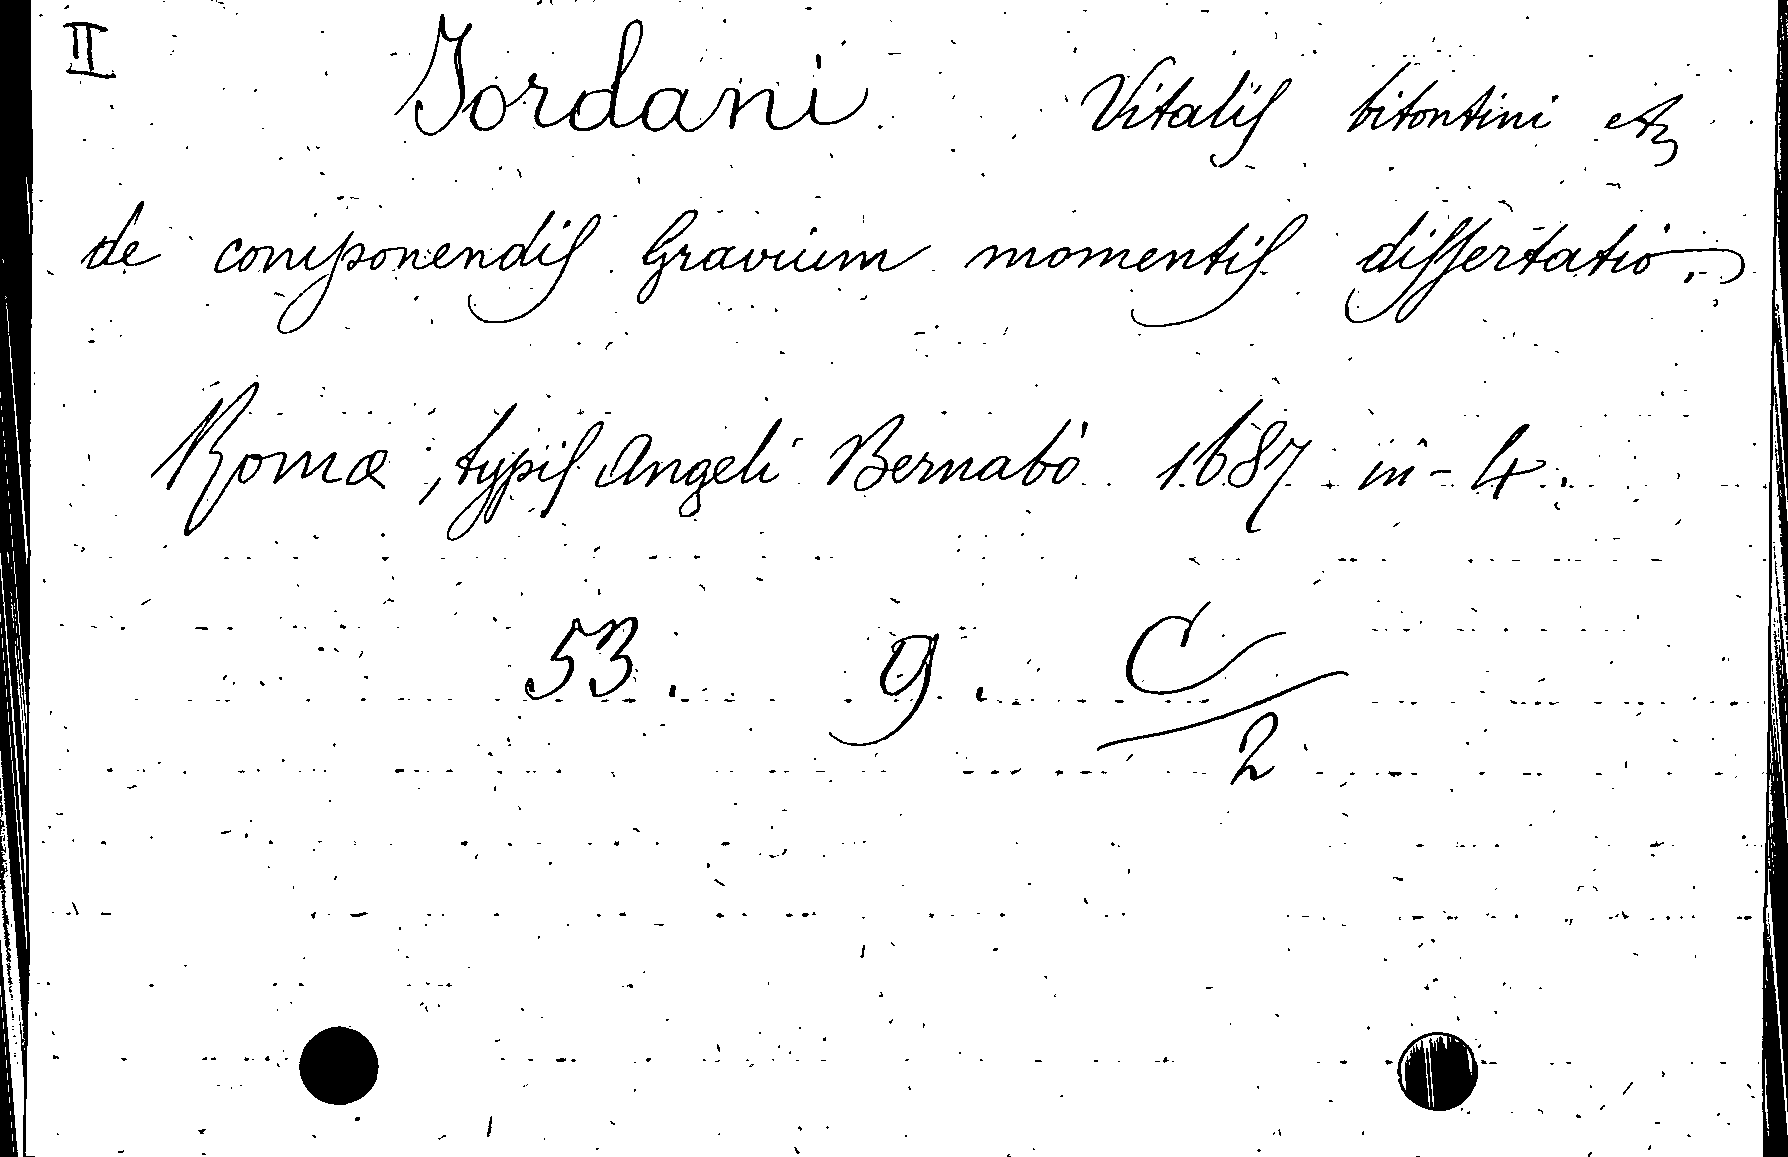 II Jordani Vitalis bitontini etc
de componendis Gravium momentis dissertatio.
Romæ, typis Angeli Bernabò 1687 in-4.
53. 9. C/2